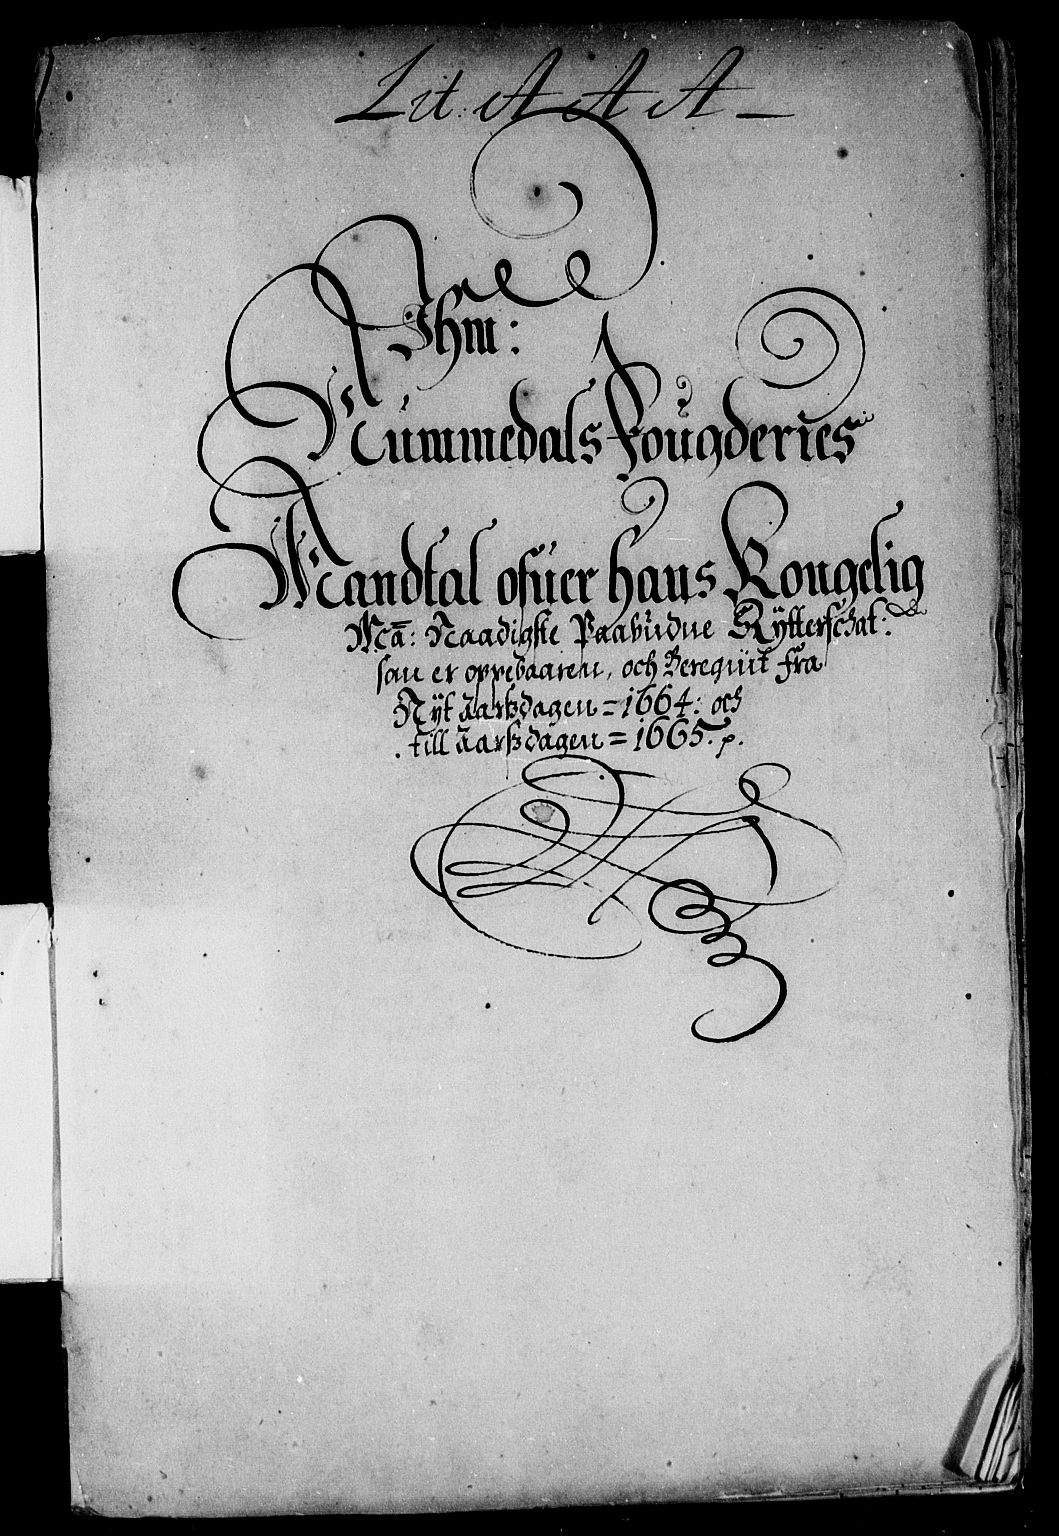 Lit: A A A
Ihm:
Nummedals Fougderies
Mandtal ofuer hans Kongelig
Ma: Naadigste Paabudne Rÿtterschat:
som er oppebaaren, och Beregnit fra
Nÿt aarsdagen = 1664: och
till aarsdagen = 1665. p.